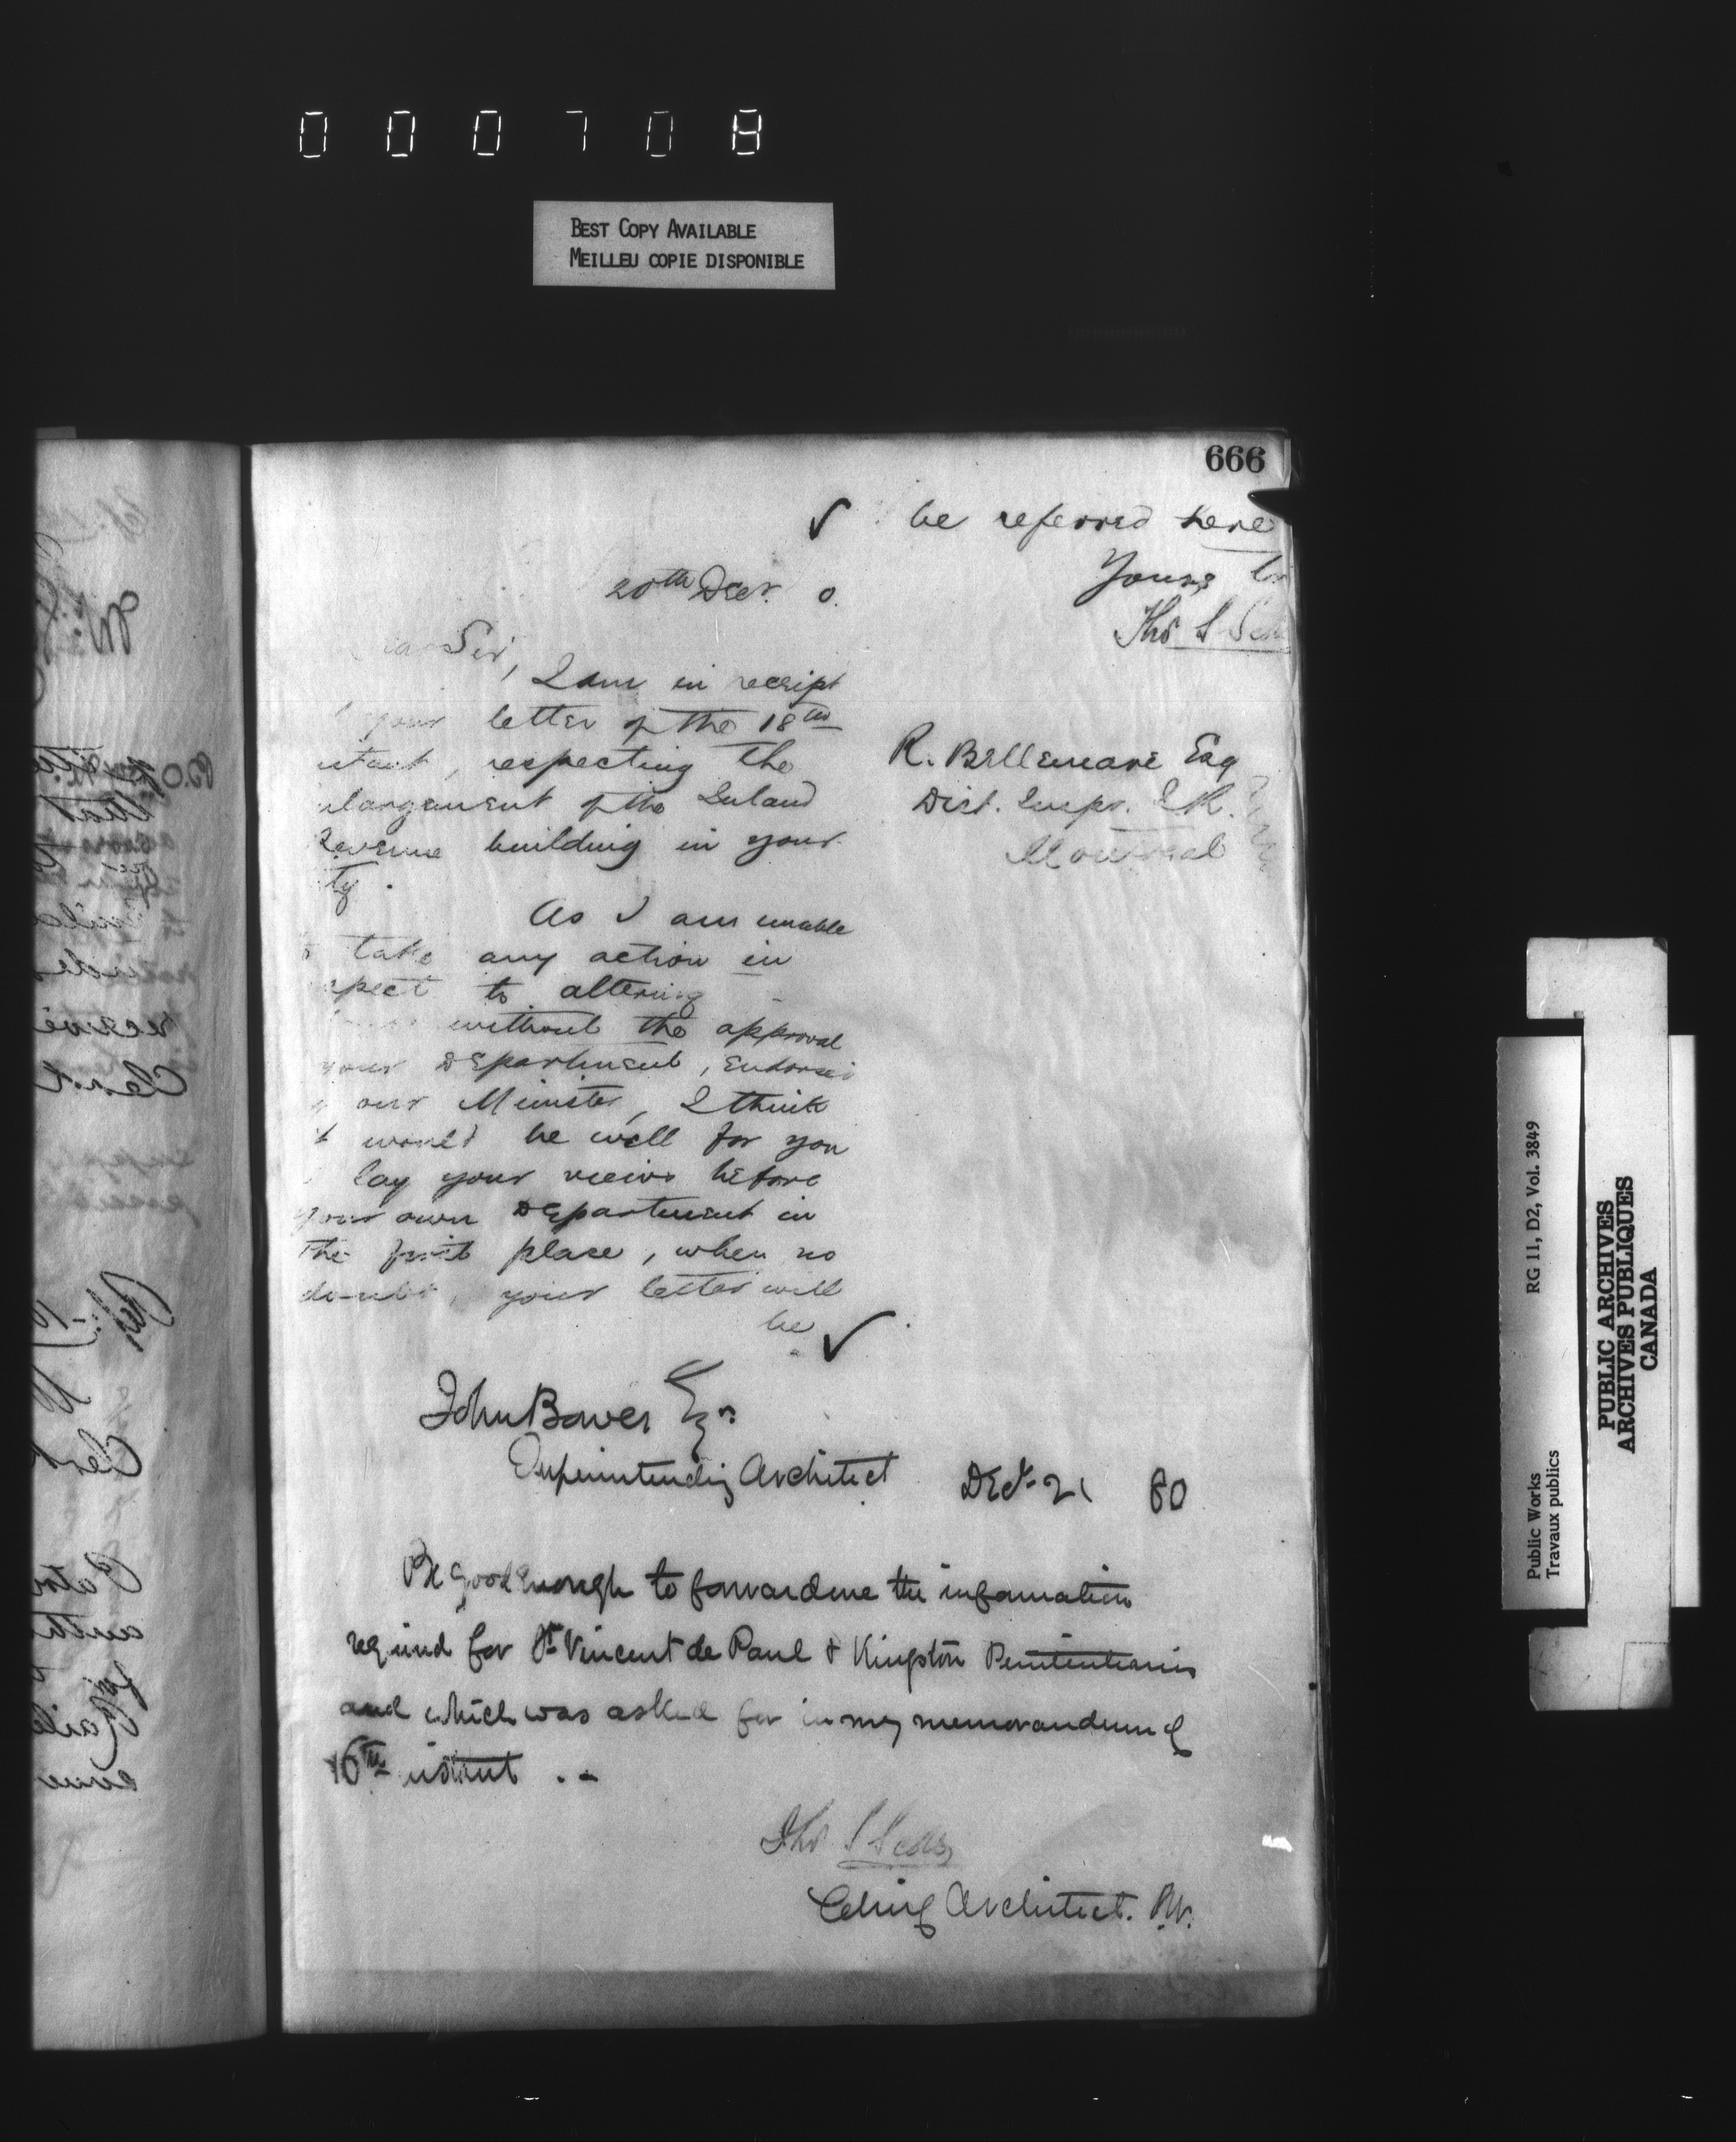 000708
BEST COPY AVAILABLE
MEILLEU COPIE DISPONIBLE
666
20th Decr. 0.
Sir,
I am in receipt
your letter of the 18th
stant, respecting the
nlargement of the Inland
Revenue building in your
ty.
As I am unable
take any action in
spect to altering
without the approval
your Department, endorsed
our Minister, I think
t would be well for you
lay your views before
your own Department in
the first place, when no
doubt, your letter will
be ✓
✓ be referred here
Yours
Thos S Sco
R. Bellemare Esq
Dist. Inspr. I.R.
Montreal
John Bowes Esqr.
Superintending Architect Decr. 21 80
Be good enough to forward me the information
required for St. Vincent de Paul & Kingston Penitentiaries
and which was asked for in my memorandum of
16th instant . -
Thos S Scott
Chief Architect. P.W.
RG 11, D2, Vol. 3849
Public Works
Travaux publics
PUBLIC ARCHIVES
ARCHIVES PUBLIQUES
CANADA